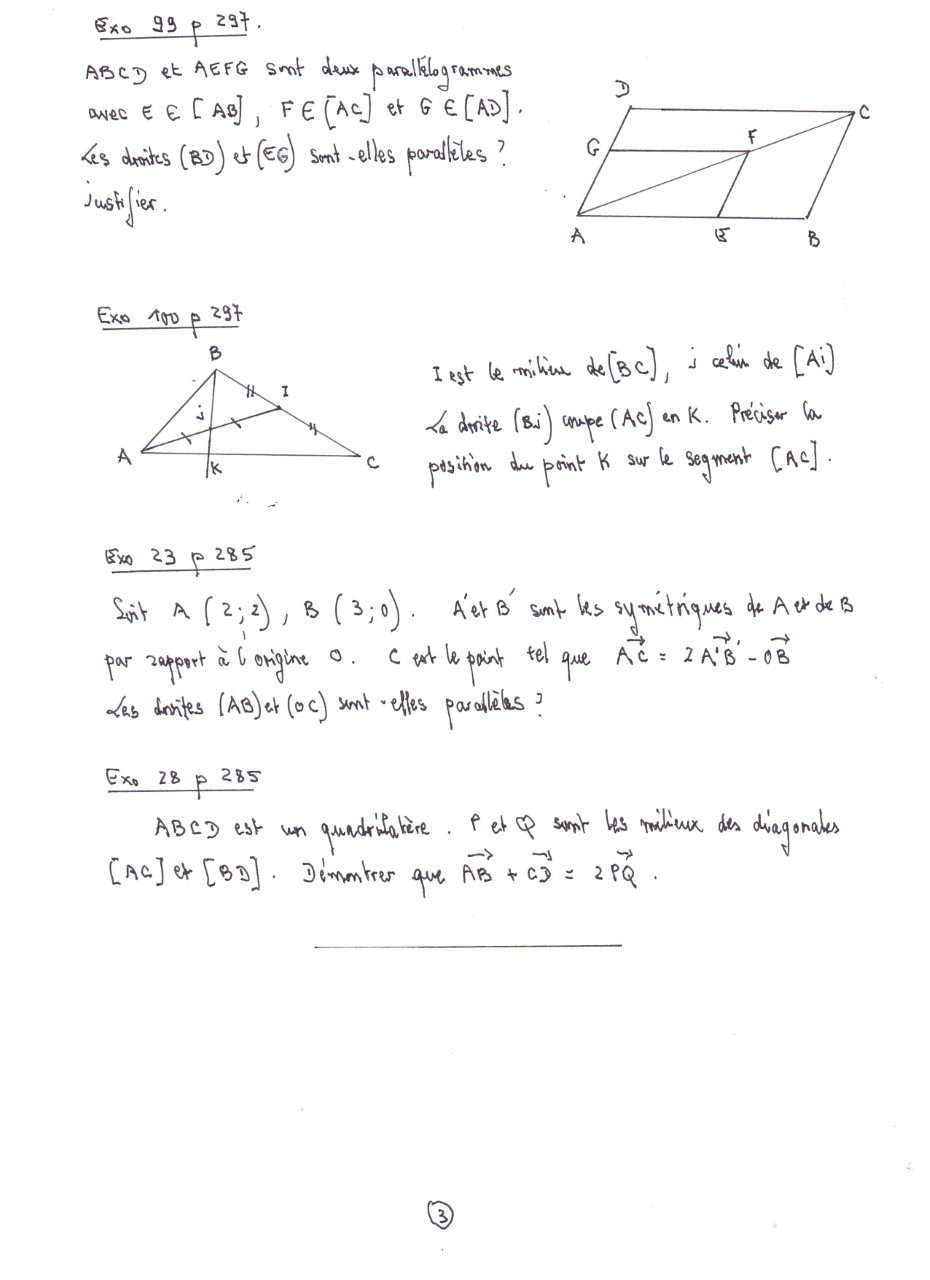 Exo 99 p 297.
ABCD et AEFG sont deux parallélogrammes
avec E ∈ [AB], F ∈ [AC] et G ∈ [AD].
Les droites (BD) et (EG) sont-elles parallèles ?
justifier.
D
C
G
F
A
E
B
Exo 100 p 297
B
I
j
A
K
C
I est le milieu de [BC], j celui de [Ai]
La droite (Bj) coupe (AC] en K. Préciser la
position du point K sur le segment [AC].
Exo 23 p 285
Soit A (2;2), B (3;0). A' et B' sont les symétriques de A et de B
par rapport à l'origine O. C est le point tel que AC⃗ = 2 A'B'⃗ - OB⃗
Les droites (AB) et (OC) sont-elles parallèles ?
Exo 28 p 285
ABCD est un quadrilatère. P et Q sont les milieux des diagonales
[AC] et [BD]. Démontrer que AB⃗ + CD⃗ = 2PQ⃗.
3